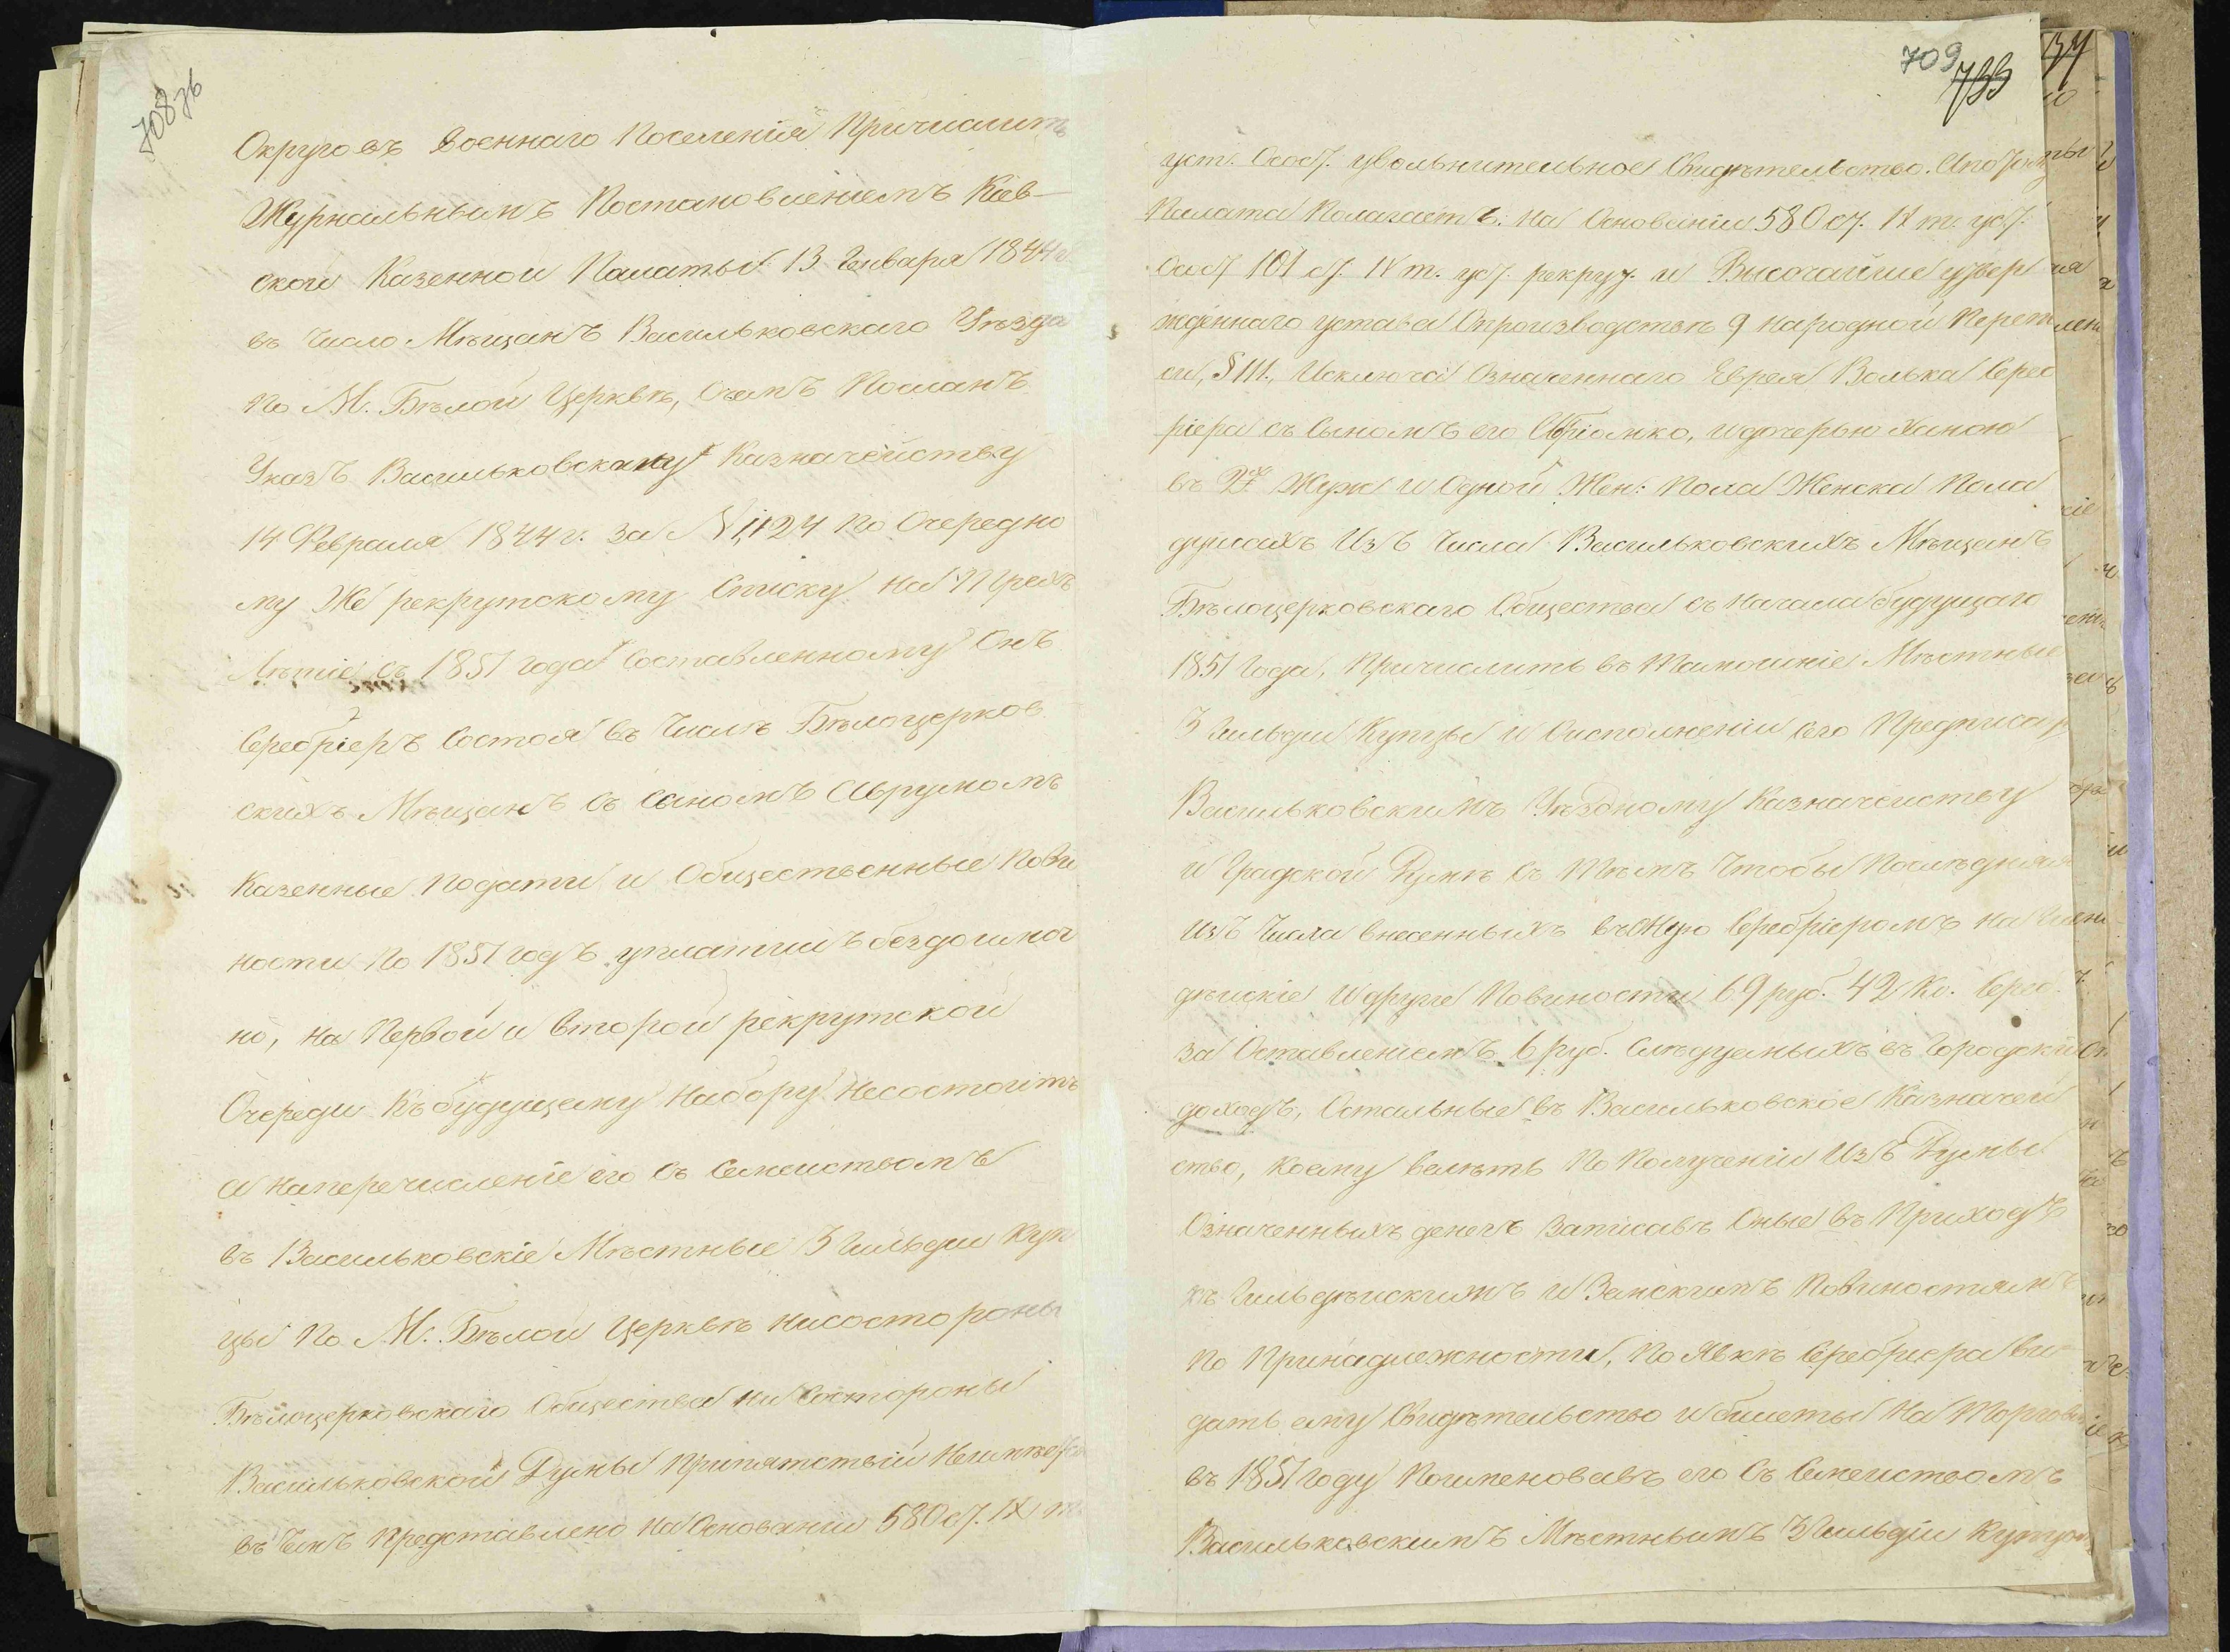 708 зв
Округовъ Военнаго Поселенія Причислить
Журнальнымъ Постановленіемъ Кіев-
ской Казенной Палаты 13 Января 1844 г
въ Число Мѣщанъ Васильковскаго Уѣзда
по М. Бѣлой Церквѣ, Очемъ Посланъ
Указъ Васильковскому Казначейству
14 Февраля 1844 г. за № 1,124 по Очередно
му Же рекрутскому Списку На Трех
Лѣтіе съ 1851 года Составленному Онъ
Серебріеръ Состоя въ Числѣ Бѣлоцерков
скихъ Мѣщанъ Съ Сыномъ Аврумомъ
Казенные Подати и Общественные Пови
ности По 1851 годъ уплатилъ бездоимоч
но, на Первой и Второй рекрутской
Очереди Къ будущему Набору Несостоитъ
а На перечисленіе его Съ Семействомъ
въ Васильковскіе Мѣстные 3 Гильдіи Куп
цы По М. Бѣлой Церквѣ нисостороны
Бѣлоцерковскаго Общества ни Состороны
Васильковской Думы Припятствій Неимѣется
въ Чемъ Представлено На Основаніи 580 ст. IX т.
709
733
уст. Сост. увольнительное Свидѣтельство. Апотому
Палата Полагаетъ: На Основаніи 580 ст. IX т. уст.
Сост 101 ст. IV т. уст. рекрут. и Высочайше утвер
жденнаго устава Опроизводствѣ 9 Народной Перепи
си, § 111., Исключа Означеннаго Еврея Волька Сереб
ріера съ Сыномъ его Абріомко, и дочерью Ханою
въ 2х Муж и Одной Жен: Пола Женска Пола
душахъ Изъ Числа Васильковскихъ Мѣщанъ
Бѣлоцерковскаго Общества съ Начала будущаго
1851 Года, Причислить въ Тамошніе Мѣстные
3 Гильдіи Купцы и Оисполненіи сего Предписать
Васильковскимъ Уѣздному Казначейству
и Градской Думѣ Съ Тѣмъ Чтобы Послѣдняя
Изъ Числа внесенныхъ въ Оную Серебріеромъ на Гиль
дѣйскіе И другіе Повиности 69 руб. 42 Ко. Сереб.
за Оставленіемъ 6 руб. Слѣдуемыхъ въ Городскій
доходъ, Остальные въ Васильковское Казначей
ство, Коему велѣть По Полученіи Изъ Думы
Означенныхъ денегъ Записавъ Оные въ Приходъ
къ Гильдѣйскимъ и Земскимъ Повиностямъ
По Принадлежности, По Явкѣ Серебріера Вы
дать ему Свидѣтельство и билеты На Торговлю
въ 1851 году Поименовавъ его Съ Семействомъ
Васильковскимъ Мѣстнымъ 3 Гильдіи Купцомъ